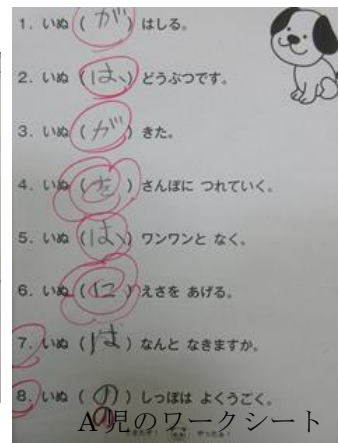 1. いぬ ( が ) はしる。
2. いぬ ( は ) どうぶつです。
3. いぬ ( が ) きた。
4. いぬ ( を ) さんぽに つれていく。
5. いぬ ( は ) ワンワンと なく。
6. いぬ ( に ) えさを あげる。
7. いぬ ( は ) なんと なきますか。
8. いぬ ( の ) しっぽは よくうごく。
A児のワークシート